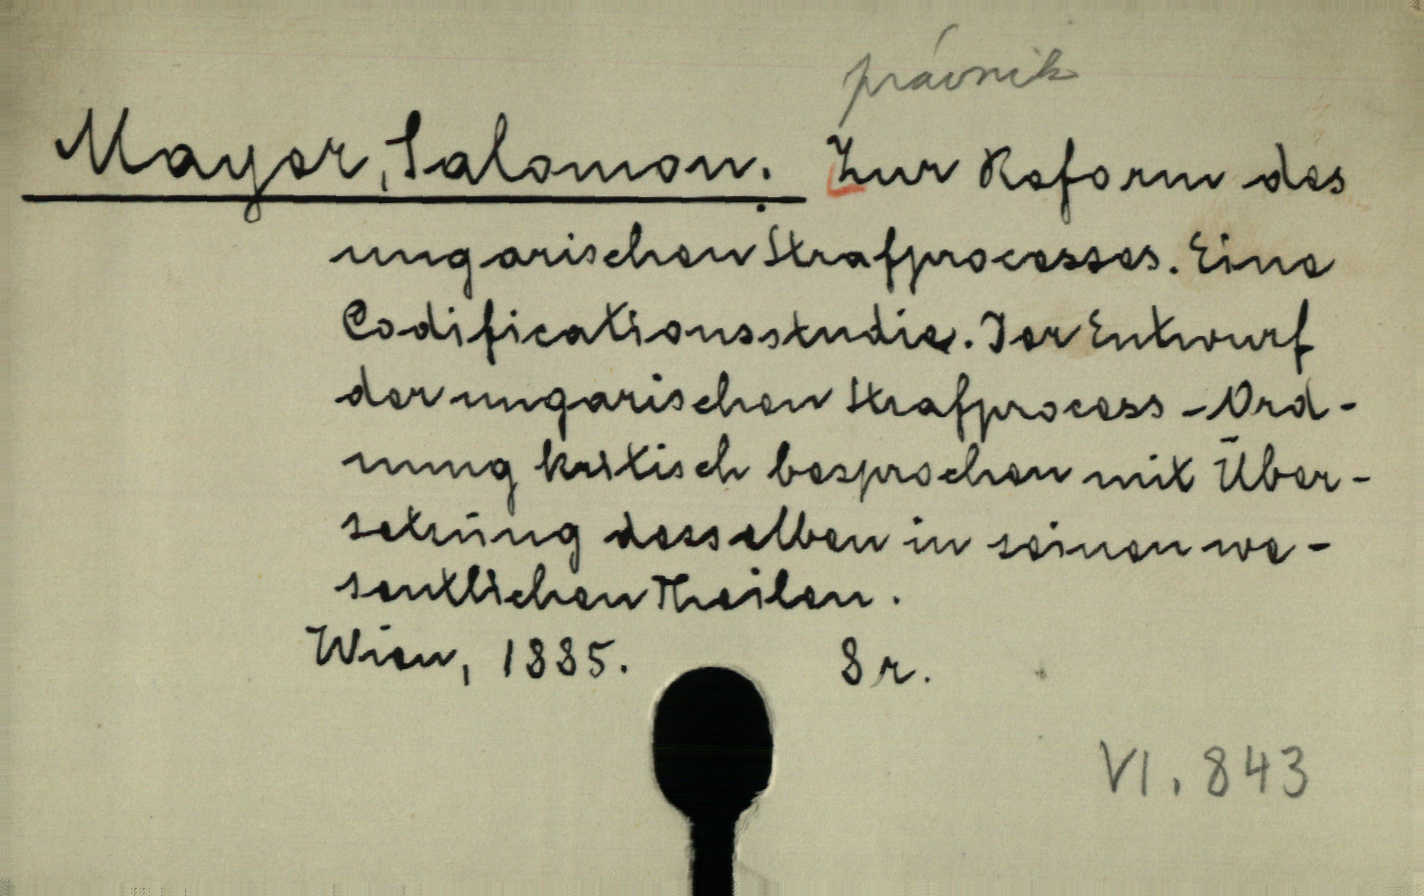 právnik
Mayer, Salomon. Zur Reform des
ungarischen Strafprocesses. Eine
Codificationsstudie. Der Entwurf
der ungarischen Strafprocess-Ord-
nung kritisch besprochen mit Über-
setzung desselben in seinen we-
sentlichen Theilen.
Wien, 1885. 8r.
VI. 843